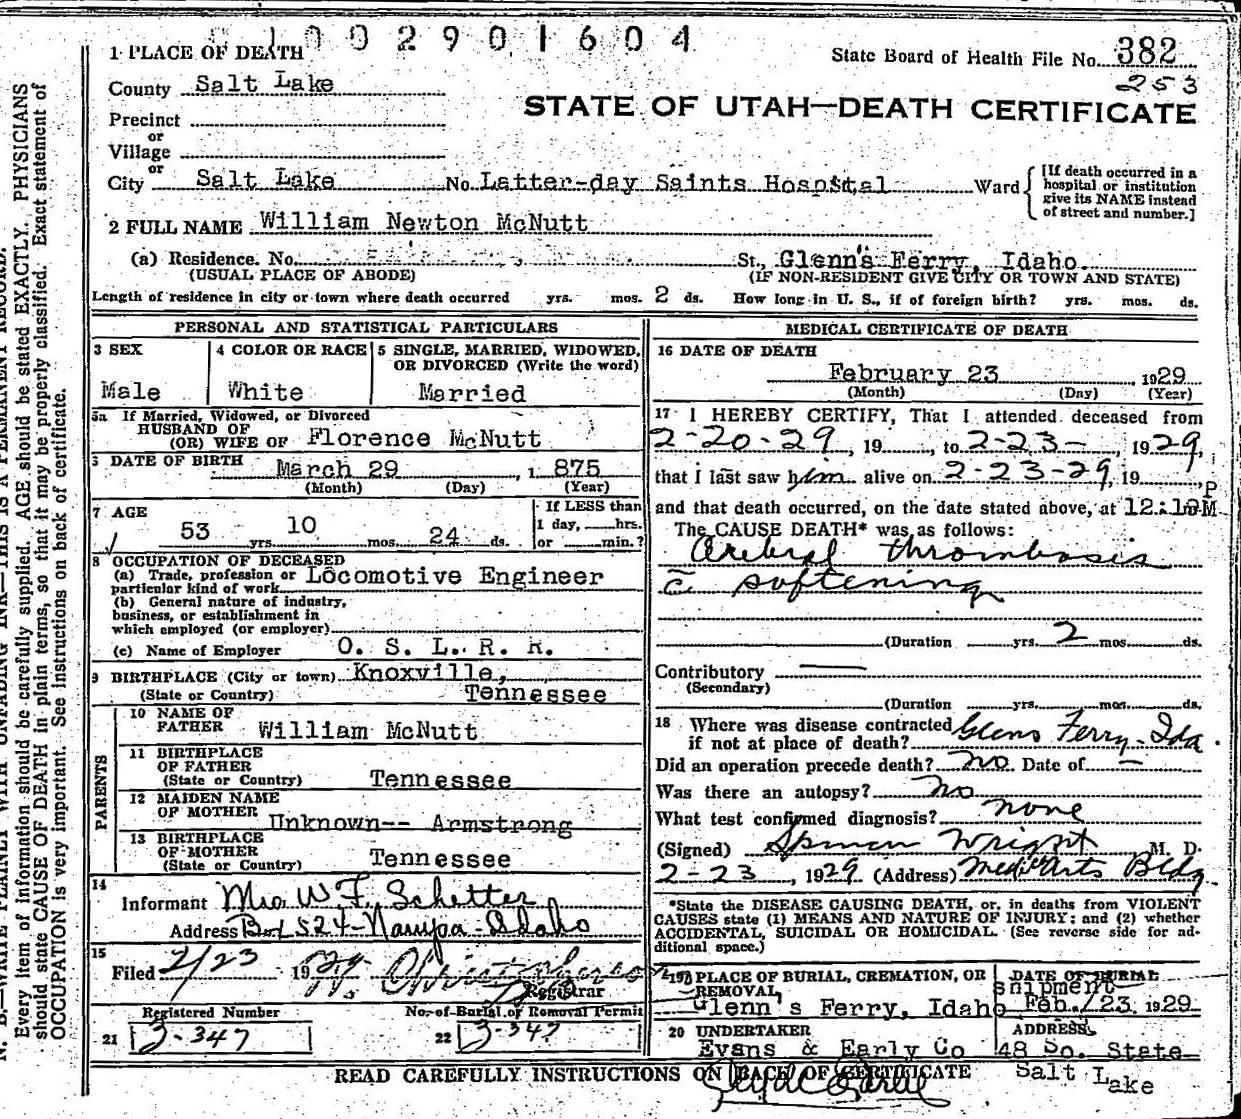 1002901604
1 PLACE OF DEATH
State Board of Health File No. 382
253
County Salt Lake
STATE OF UTAH—DEATH CERTIFICATE
Precinct
or
Village
or
City Salt Lake No. Latter-day Saints Hospital Ward [If death occurred in a hospital or institution give its NAME instead of street and number.]
2 FULL NAME William Newton McNutt
(a) Residence. No. St., Glenn's Ferry, Idaho
(USUAL PLACE OF ABODE) (IF NON-RESIDENT GIVE CITY OR TOWN AND STATE)
Length of residence in city or town where death occurred yrs. mos. 2 ds. How long in U. S., if of foreign birth? yrs. mos. ds.
PERSONAL AND STATISTICAL PARTICULARS
3 SEX 4 COLOR OR RACE 5 SINGLE, MARRIED, WIDOWED,
OR DIVORCED (Write the word)
Male White Married
5a If Married, Widowed, or Divorced
HUSBAND OF
(OR) WIFE OF Florence McNutt
6 DATE OF BIRTH March 29, 1 875
(Month) (Day) (Year)
7 AGE If LESS than
53 yrs. 10 mos. 24 ds. 1 day, hrs.
or min.?
8 OCCUPATION OF DECEASED
(a) Trade, profession or Locomotive Engineer
particular kind of work
(b) General nature of industry,
business, or establishment in
which employed (or employer)
(c) Name of Employer O. S. L. R. R.
9 BIRTHPLACE (City or town) Knoxville,
(State or Country) Tennessee
PARENTS
10 NAME OF
FATHER William McNutt
11 BIRTHPLACE
OF FATHER
(State or Country) Tennessee
12 MAIDEN NAME
OF MOTHER Unknown-- Armstrong
13 BIRTHPLACE
OF MOTHER
(State or Country) Tennessee
14
Informant Mrs W F. Schetter
Address Box 524-Nampa-Idaho
15
Filed 2/23 1929
Registrar
Registered Number No. of Burial or Removal Permit
21 3-347 22 3-347
MEDICAL CERTIFICATE OF DEATH
16 DATE OF DEATH
February 23, 1929
(Month) (Day) (Year)
17 I HEREBY CERTIFY, That I attended deceased from
2-20-29, 19, to 2-23-, 1929,
that I last saw him alive on 2-23-29, 19,
and that death occurred, on the date stated above, at 12:10 P M
The CAUSE DEATH* was as follows:
Cerebral thrombosis
c̄ softening
(Duration yrs. 2 mos. ds.
Contributory
(Secondary)
(Duration yrs. mos. ds.
18 Where was disease contracted Glens Ferry-Ida.
if not at place of death?
Did an operation precede death? no Date of —
Was there an autopsy? no
What test confirmed diagnosis? none
(Signed) Wright, M. D.
2-23, 1929 (Address) Med. Arts Bldg
*State the DISEASE CAUSING DEATH, or, in deaths from VIOLENT
CAUSES state (1) MEANS AND NATURE OF INJURY; and (2) whether
ACCIDENTAL, SUICIDAL OR HOMICIDAL. (See reverse side for ad-
ditional space.)
19 PLACE OF BURIAL, CREMATION, OR DATE OF BURIAL
REMOVAL, shipment
Glenn's Ferry, Idaho Feb. 23, 1929
20 UNDERTAKER ADDRESS
Evans & Early Co 48 So. State
Salt Lake
READ CAREFULLY INSTRUCTIONS ON BACK OF CERTIFICATE
N. B.—WRITE PLAINLY WITH UNFADING INK—THIS IS A PERMANENT RECORD.
Every item of information should be carefully supplied. AGE should be stated EXACTLY. PHYSICIANS
should state CAUSE OF DEATH in plain terms, so that it may be properly classified. Exact statement of
OCCUPATION is very important. See instructions on back of certificate.